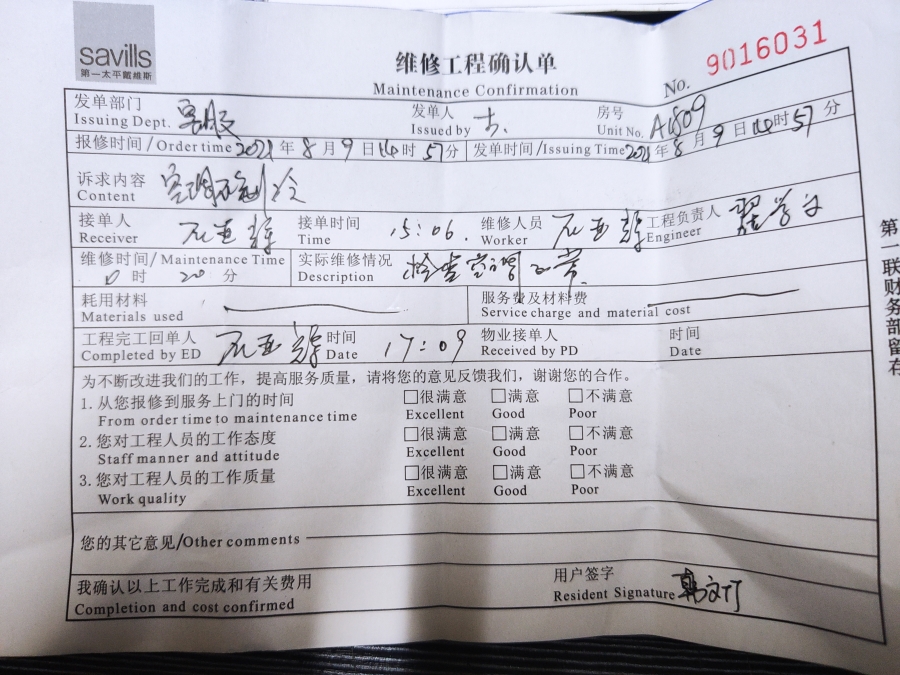 savills
第一太平戴維斯
维修工程确认单
Maintenance Confirmation
No. 9016031
发单部门 客服 发单人 房号
Issuing Dept. Issued by Unit No. A1809
报修时间/Order time 2021年8月9日14时57分 发单时间/Issuing Time 2021年8月9日14时57分
诉求内容 空调不制冷
Content
接单人 石亚辉 接单时间 15:06. 维修人员 石亚辉 工程负责人 翟学文
Receiver Time Worker Engineer
维修时间/Maintenance Time 实际维修情况 检查空调正常
0时20分 Description
耗用材料 服务费及材料费
Materials used Service charge and material cost
工程完工回单人 石亚辉 时间 17:09 物业接单人 时间
Completed by ED Date Received by PD Date
为不断改进我们的工作，提高服务质量，请将您的意见反馈我们，谢谢您的合作。
1.从您报修到服务上门的时间 □很满意 □满意 □不满意
From order time to maintenance time Excellent Good Poor
2.您对工程人员的工作态度 □很满意 □满意 □不满意
Staff manner and attitude Excellent Good Poor
3.您对工程人员的工作质量 □很满意 □满意 □不满意
Work quality Excellent Good Poor
您的其它意见/Other comments
我确认以上工作完成和有关费用 用户签字
Completion and cost confirmed Resident Signature 韩文丁
第一联财务部留存